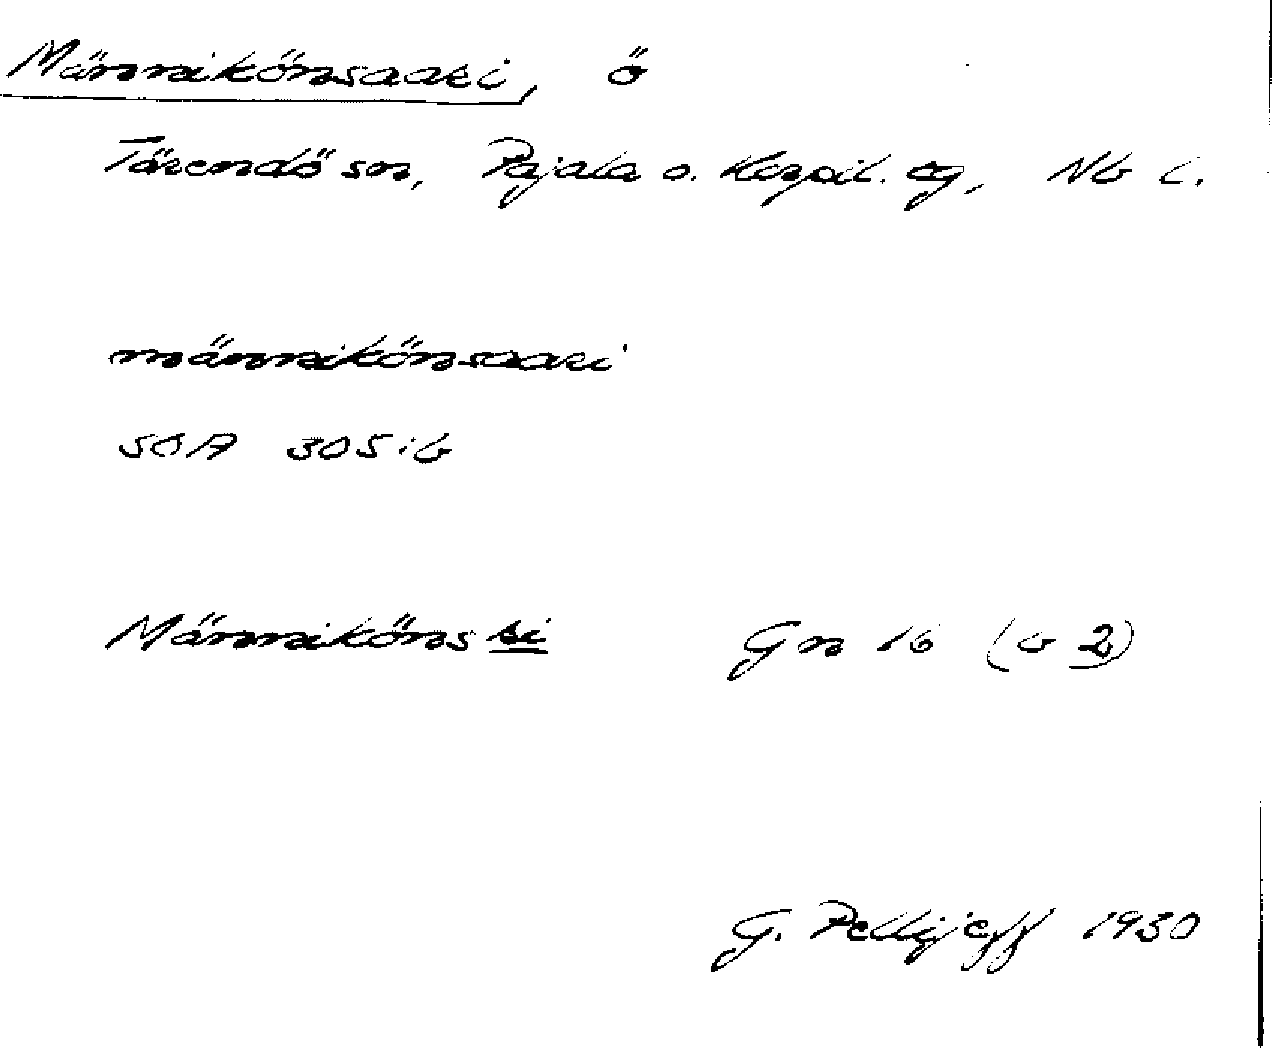 Männikönsaari, ö
Tärendö sn, Pajala o. Korpil. tg, Nb l.
männikönsaari
SOA 305:6
Männiköns ri Gn 16 (b 2)
G. Pellijeff 1930